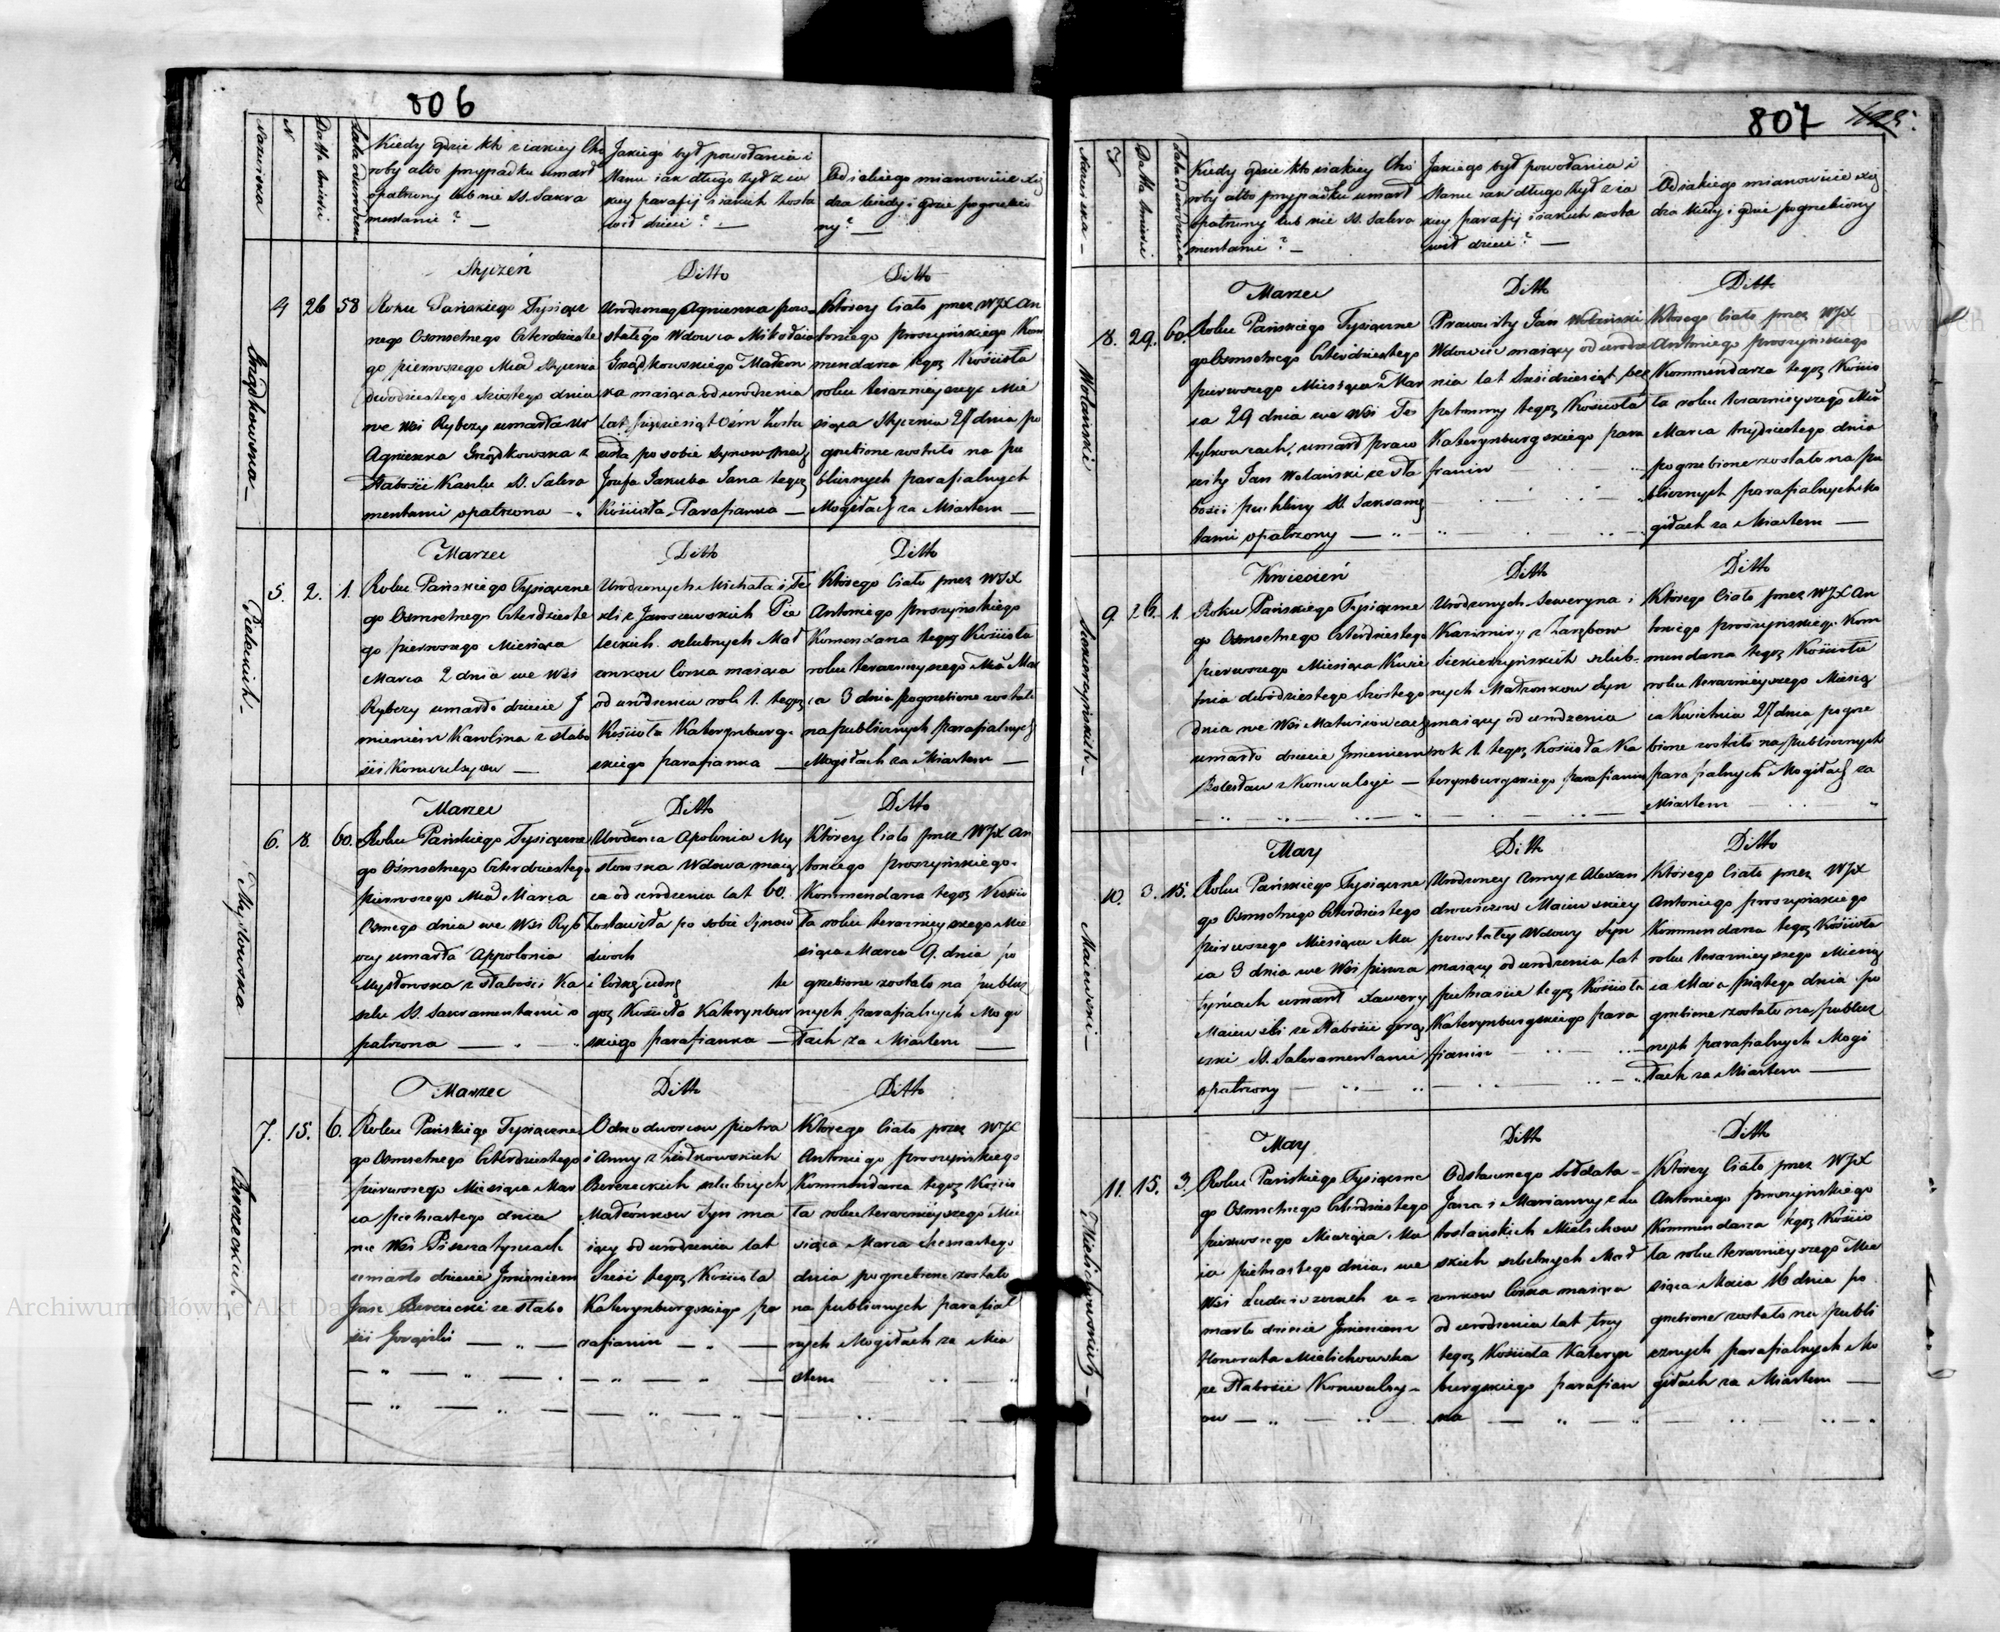 806
Nazwiska
N
Datta śmierci
Lata od urodzenia
Kiedy gdzie kto z iakiey Cho
roby albo przypadku umarł
opatrzony lub nie SS. Sakra
mentami? —
Jakiego był powołania i
stanu iak długo żył z ia
kiey parafij i iakich zosta
wił dzieci? —
Od iakiego mianowicie xię
dza kiedy i gdzie pogrzebio
ny? —
Styczeń
Ditto
Ditto
4 26 58
Roku Pańskiego Tysiącz
nego Osmsetnego Czterdzieste
go pierwszego Mca Stycznia
dwódziestego szóstego dnia
we Wsi Rybczy umarła Ur
Agnieszka Grządkowska z
słabości Kaszlu SS. Sakra
mentami opatrzona — „
Urodzoney Agnieszka pozo
stałego Wdowca Mikołaia
Grządkowskiego Małżon
ka maiąca od urodzenia
lat pięćdziesiąt Ośm Zosta
wiła po sobie synow trzech
Jozefa Jakuba Jana tegoż
Kościoła Parafianka —
Ktorey Ciało przez WJX An
toniego Proszyńskiego Kom
mendarza tegoż Kościoła
roku terazniejszego Mie
siąca Stycznia 27 dnia po
grzebione zostało na pu
blicznych parafialnych
Mogiłach za Miastem —
Marzec
Ditto
Ditto
Pieleckich —
5. 2. 1.
Roku Pańskiego Tysiączne
go Osmsetnego Czterdzieste
go pierwszego Miesiąca
Marca 2 dnia we Wsi
Rybczy umarło dziecie J
mieniem Karolina z słabo
ści Konwulsyow —
Urodzonych Michała i Te
kli z Jaroszewskich Pie
leckich szlubnych Mał
zonkow Corka maiąca
od urodzenia rok 1. tegoż
Kościoła Katerynburg.
skiego parafianka —
Ktorego Ciało przez WJX
Antoniego Proszyńskiego
Komendarza tegoż Kościoła
roku terazniejszego Mca Mar
ca 3 dnia pogrzebione zostało
na publicznych parafialnych
Mogiłach za Miastem —
Marzec
Ditto
Ditto
Mysłowska
6. 8. 60.
Roku Pańskiego Tysiączne
go Osmsetnego Czterdziestego
pierwszego Mca Marca
Osmego dnia we Wsi Ryb
czy umarła Appolonia
Mysłowska z słabości Ka
szlu SS. Sakramentami o
patrzona — „
Urodzona Apolonia My
słowska Wdowa maią
ca od urodzenia lat 60.
Zostawiła po sobie Synow
dwoch
i Corkę iedną te
goż Kościoła Katerynbur
skiego parafianka —
Ktorey Ciało przez WJX An
toniego Proszyńskiego.
Kommendarza tegoż Kościo
ła roku terazniejszego Mie
siąca Marca 9. dnia po
grzebione zostało na publicz
nych parafialnych Mogi
łach za Miastem —
Marzec
Ditto
Ditto
Berezeckich —
7. 15. 6.
Roku Pańskiego Tysiączne
go Osmsetnego Czterdziestego
pierwszego Miesiąca Mar
ca piętnastego dnia
we Wsi Piszczatyńcach
umarło dziecie Jmieniem
Jan Berezecki ze słabo
ści Gorączki — „ —
Odnodworcow Piotra
i Anny z
Berezeckich szlubnych
Małżonkow Syn ma
iący od urodzenia lat
Sześć tegoż Kościoła
Katerynburgskiego pa
rafianin — „ —
Ktorego Ciało przez WJX
Antoniego Proszyńskiego
Kommendarza tegoż Kościo
ła roku terazniejszego Mie
siąca Marca szesnastego
dnia pogrzebione zostało
na publicznych parafial
nych Mogiłach za Mia
stem
807
Nazwiska —
Datta śmierci
Lata od urodzenia
Kiedy gdzie kto z iakiey Cho
roby albo przypadku umarł
opatrzony lub nie SS. Sakra
mentami? —
Jakiego był powołania i
stanu iak długo żył z ia
kiey parafij i iakich zosta
wił dzieci? —
Od iakiego mianowicie xię
dza kiedy i gdzie pogrzebiony
Marzec
Ditto
Ditto
Wolański
8. 29. 60.
Roku Pańskiego Tysiączne
go Osmsetnego Czterdziestego
pierwszego Miesiąca Mar
ca 29 dnia we Wsi Fe
tylkowcach, umarł praco
wity Jan Wolański ze sła
bości puchliny SS. Sakramen
tami opatrzony — „
Pracowity Jan Wolański
Wdowiec maiący od urodze
nia lat sześćdziesiąt bez
potomny tegoż Kościoła
Katerynburgskiego para
fianin
Ktorego Ciało przez WJX
Antoniego Proszyńskiego
Kommendarza tegoż Kościo
ła roku terazniejszego Mca
Marca trzydziestego dnia
pogrzebione zostało na pu
blicznych parafialnych Mo
giłach za Miastem —
Kwiecień
Ditto
Ditto
Siekierzyńskich —
9. 26. 1.
Roku Pańskiego Tysiączne
go Osmsetnego Czterdziestego
pierwszego Miesiąca Kwie
tnia dwódziestego szóstego
dnia we Wsi Matwijowcach
umarło dziecie Jmieniem
Bolesław z Konwulsyi —
Urodzonych Seweryna i
Kazimiry z Zarębow
Siekierzyńskich szlub-
nych Małżonkow Syn
maiący od urodzenia
rok 1. tegoż Kościoła Ka
terynburgskiego parafianin
Ktorego Ciało przez WJX An
toniego Proszyńskiego Kom
mendarza tegoż Kościoła
roku terazniejszego Miesią
ca Kwietnia 27 dnia pogrze
bione zostało na publicznych
parafialnych Mogiłach za
Miastem
May
Ditto
Ditto
Maiewski —
10. 3. 15.
Roku Pańskiego Tysiączne
go Osmsetnego Czterdziestego
pierwszego Miesiąca Ma
ia 3 dnia we Wsi Piszcza
tyńcach umarł Xawery
Maiewski ze słabości gorą
czki SS. Sakramentami
opatrzony
Urodzoney Anny z Alexan
drowiczow Maiewskiey
pozostałey Wdowy Syn
maiący od urodzenia lat
piętnaście tegoż Kościoła
Katerynburgskiego para
fianin
Ktorego Ciało przez WJX
Antoniego Proszyńskiego
Kommendarza tegoż Kościoła
roku terazniejszego Miesią
ca Maia piątego dnia po
grzebione zostało na publicz
nych parafialnych Mogi
łach za Miastem —
May
Ditto
Ditto
Mielichowskich —
11. 15. 3.
Roku Pańskiego Tysiączne
go Osmsetnego Czterdziestego
pierwszego Miesiąca Ma
ia piętnastego dnia, we
Wsi Ludwiszczach u=
marło dziecie Jmieniem
Honorata Mielichowska
ze słabości Konwulsy-
ow — „
Odstawnego Sołdata
Jana i Maryanny z Zu
Mielichow
skich szlubnych Mał
zonkow Corka maiąca
od urodzenia lat trzy
tegoż Kościoła Kateryn
burgskiego parafian
ka
Ktorey Ciało przez WJX
Antoniego Proszyńskiego
Kommendarza tegoż Kościo
ła roku terazniejszego Mie
siąca Maia 16 dnia po
grzebione zostało na publi
cznych parafialnych Mo
giłach za Miastem —
Archiwum Główne Akt Dawnych